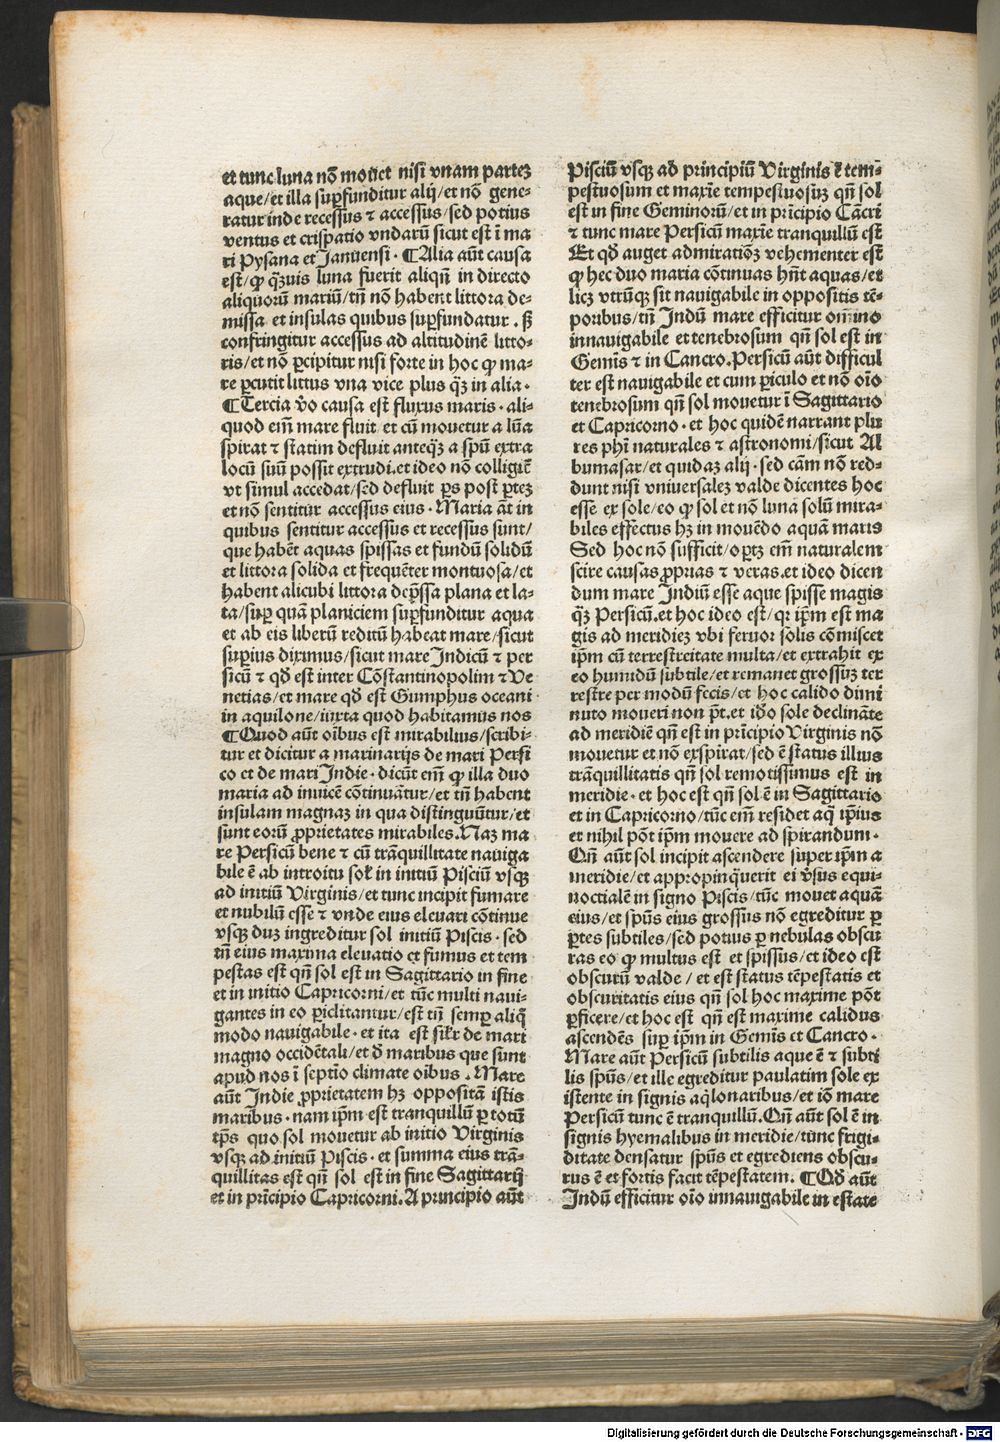 et tunc luna nō mouet nisi vnam partez
aque/et illa suꝑfunditur alij/et nō gene-
ratur inde recessus ⁊ accessus/sed potius
ventus et crispatio vndarū sicut est ī ma
ri Pysana et Januensi · ¶Alia aūt causa
est/ꝙ q̄zuis luna fuerit aliqn̄ in directo
aliquorū mariū/tn̄ nō habent littora de-
missa et insulas quibus suꝑfundatur · sꝫ
confringitur accessus ad altitudinē litto-
ris/et nō ꝑcipitur nisi forte in hoc ꝙ ma-
re ꝑcutit littus vna vice plus q̄z in alia ·
¶Tercia v̄o causa est fluxus maris · ali-
quod em̄ mare fluit et cū mouetur a lūa
spirat ⁊ statim defluit anteq̄z a spū extra
locū suū possit extrudi.et ideo nō colligit̄
vt simul accedat/sed defluit ꝑs post ꝑtez
et nō sentitur accessus eius · Maria āt in
quibus sentitur accessus et recessus sunt/
que habēt aquas spissas et fundū solidū
et littora solida et frequēter montuosa/et
habent alicubi littora dep̄ssa plana et la-
ta/suꝑ quā planiciem suꝑfunditur aqua
et ab eis liberū reditū habeat mare/sicut
suꝑius diximus/sicut mare Indicū ⁊ per
sicū ⁊ qd̄ est inter Cōstantinopolim ⁊ Ve
netias/et mare qd̄ est Gumphus oceani
in aquilone/iuxta quod habitamus nos
¶Quod aūt oībus est mirabilius/scribi-
tur et dicitur a marinarijs de mari Persi
co et de mari Indie · dicūt em̄ ꝙ illa duo
maria ad inuicē cōtinuātur/et tn̄ habent
insulam magnaz in qua distinguūtur/et
sunt eorū ꝓprietates mirabiles.Naz ma
re Persicū bene ⁊ cū trāquillitate nauiga
bile ē ab introitu sol̄ in initiū Pisciū vsqꝫ
ad initiū Virginis/et tunc incipit fumare
et nubilū esse ⁊ vnde eius eleuari cōtinue
vsqꝫ duz ingreditur sol initiū Piscis · sed
tn̄ eius maxima eleuatio et fumus et tem
pestas est qn̄ sol est in Sagittario in fine
et in initio Capricorni/et tūc multi naui-
gantes in eo ꝑiclitantur/est tn̄ semꝑ aliq̄
modo nauigabile · et ita est sil̄r de mari
magno occidētali/et d̄ maribus que sunt
apud nos ī septīo climate oībus . Mare
aūt Indie ꝓprietatem hꝫ oppositā istis
maribus · nam ip̄m est tranquillū ꝑ totū
tp̄s quo sol mouetur ab initio Virginis
vsqꝫ ad initiū Piscis · et summa eius trā-
quillitas est qn̄ sol est in fine Sagittarij
et in prīcipio Capricorni. A principio aūt
Pisciū vsqꝫ ad principiū Virginis ē tem-
pestuosum et maxīe tempestuosūz qn̄ sol
est in fine Geminorū/et in prīcipio Cācri
⁊ tunc mare Persicū maxīe tranquillū est
Et qd̄ auget admiratiōz vehementer est
ꝙ hec duo maria cōtinuas hn̄t aquas/et
licz vtrūqꝫ sit nauigabile in oppositis tē-
poribus/tn̄ Indū mare efficitur omīno
innauigabile et tenebrosum qn̄ sol est in
Gemīs ⁊ in Cancro.Persicū aūt difficul
ter est nauigabile et cum ꝑiculo et nō oīo
tenebrosum qn̄ sol mouetur ī Sagittario
et Capricorno · et hoc quidē narrant plu
res phī naturales ⁊ astronomi/sicut Al
bumasar/et quidaz alij · sed cām nō red-
dunt nisi vniuersalez valde dicentes hoc
esse ex sole/eo ꝙ sol et nō luna solū mira-
biles effectus hꝫ in mouēdo aquā maris
Sed hoc nō sufficit/oportꝫ em̄ naturalem
scire causas ꝓprias ⁊ veras.et ideo dicen
dum mare Indiū esse aque spisse magis
q̄z Persicū.et hoc ideo est/qꝛ ip̄m est ma
gis ad meridiez vbi feruor solis cōmiscet
ip̄m cū terrestreitate multa/et extrahit ex
eo humidū subtile/et remanet grossuz ter
restre per modū fecis/et hoc calido dimi
nuto moueri non p̄t.et iđo sole declināte
ad meridiē qn̄ est in prīcipio Virginis nō
mouetur et nō exspirat/sed ē status illius
trāquillitatis qn̄ sol remotissimus est in
meridie · et hoc est qn̄ sol ē in Sagittario
et in Capricorno/tūc em̄ residet aq̄ ip̄ius
et nihil pōt ip̄m mouere ad spirandum ·
Qn̄ aūt sol incipit ascendere super ip̄m a
meridie/et appropinq̄uerit ei v̄sus equi-
noctialē in signo Piscis/tūc mouet aquā
eius/et spūs eius grossus nō egreditur ꝑ
ꝑtes subtiles/sed potius ꝑ nebulas obscu
ras eo ꝙ multus est et spissus/et ideo est
obscurū valde / et est status tēpestatis et
obscuritatis eius qn̄ sol hoc maxime pōt
ꝑficere/et hoc est qn̄ est maxime calidus
ascendēs suꝑ ip̄m in Gemīs et Cancro ·
Mare aūt Persicū subtilis aque ē ⁊ subti
lis spūs/et ille egreditur paulatim sole ex
istente in signis aq̄lonaribus/et iō mare
Persicū tunc ē tranquillū.Qn̄ aūt sol ē in
signis hyemalibus in meridie/tunc frigi-
ditate densatur spūs et egrediens obscu-
rus ē et fortis facit tēpestatem. ¶Qd̄ aūt
Indū efficitur oīo innauigabile in estate
Digitalisierung gefördert durch die Deutsche Forschungsgemeinschaft - DFG